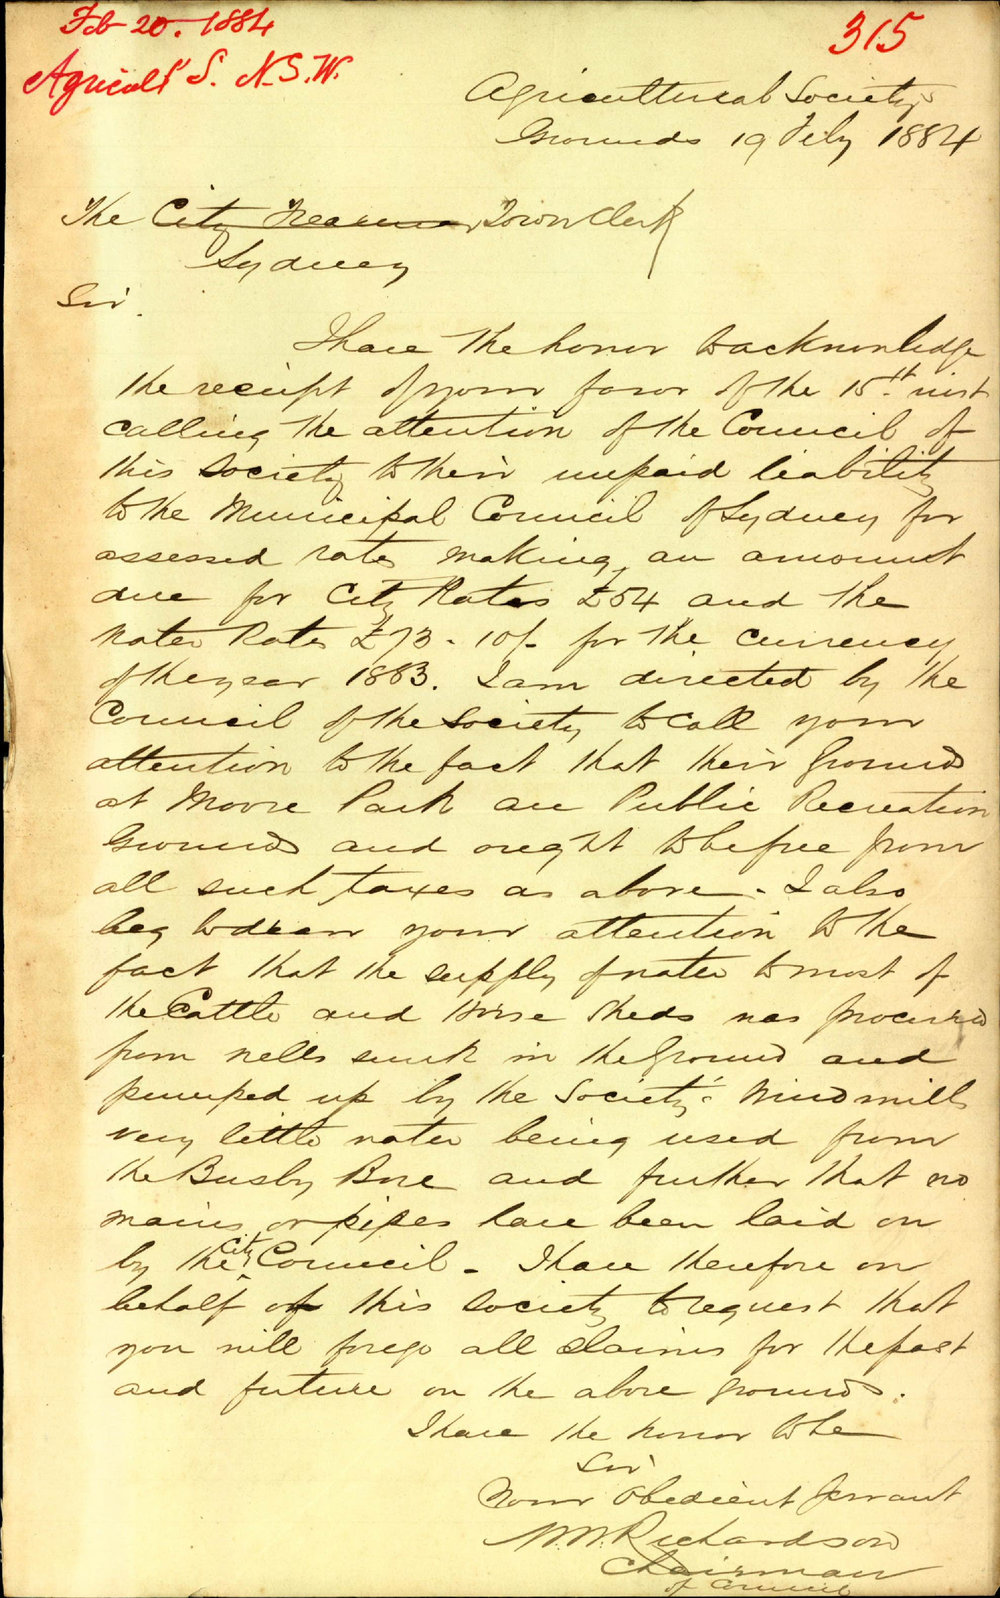 Feb 20. 1884
Agricult' S. N.S.W.
315
Agricultural Society's
Grounds 19 Feby 1884
The City Treasurer Town Clerk
Sydney
Sir.
I have the honor to acknowledge
the receipt of your favor of the 15th inst
calling the attention of the Council of
this Society to their unpaid liability
to the Municipal Council of Sydney for
assessed rates making an amount
due for City Rates £54 and the
Water Rates £73-10/- for the currency
of the year 1883. I am directed by the
Council of the Society to call your
attention to the fact that their Grounds
at Moore Park are Public Recreation
Grounds and ought to be free from
all such taxes as above. I also
beg to draw your attention to the
fact that the supply of water to most of
the Cattle and Horse Sheds was procured
from wells sunk in the Ground and
pumped up by the Society's Windmills
very little water being used from
the Busby Bore and further that no
mains or pipes have been laid on
by the City Council - I have therefore on
behalf of this Society to request that
you will forego all claims for the past
and future on the above grounds.
I have the honor to be
Sir
Your Obedient Servant
Richardson
Chairman
of Council